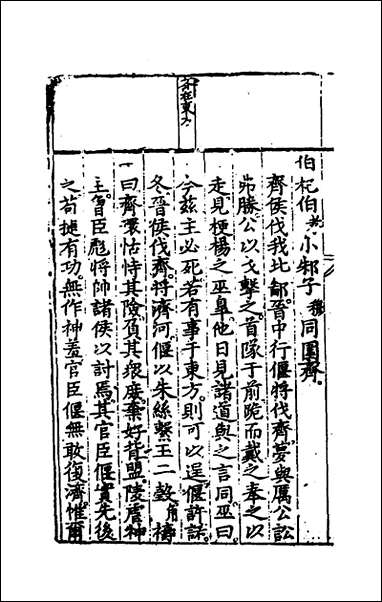 伯杞伯小邾子同圍齊
齊侯伐我北鄙晉中行偃將伐齊夢與厲公訟
弗勝公以戈擊之首隊于前跪而戴之奉之以
走見梗楊之巫皐他日見諸道與之言同巫曰
今茲主必死若有事于東方則可以逞偃許諾
冬晉侯伐齊將濟河偃以朱絲繫玉二瑴角禱
曰齊環怙恃其險負其衆庶棄好背盟陵虐神
主曾臣彪將帥諸侯以討焉其官臣偃實先後
之苟捷有功無作神羞官臣偃無敢復濟惟爾
在東方